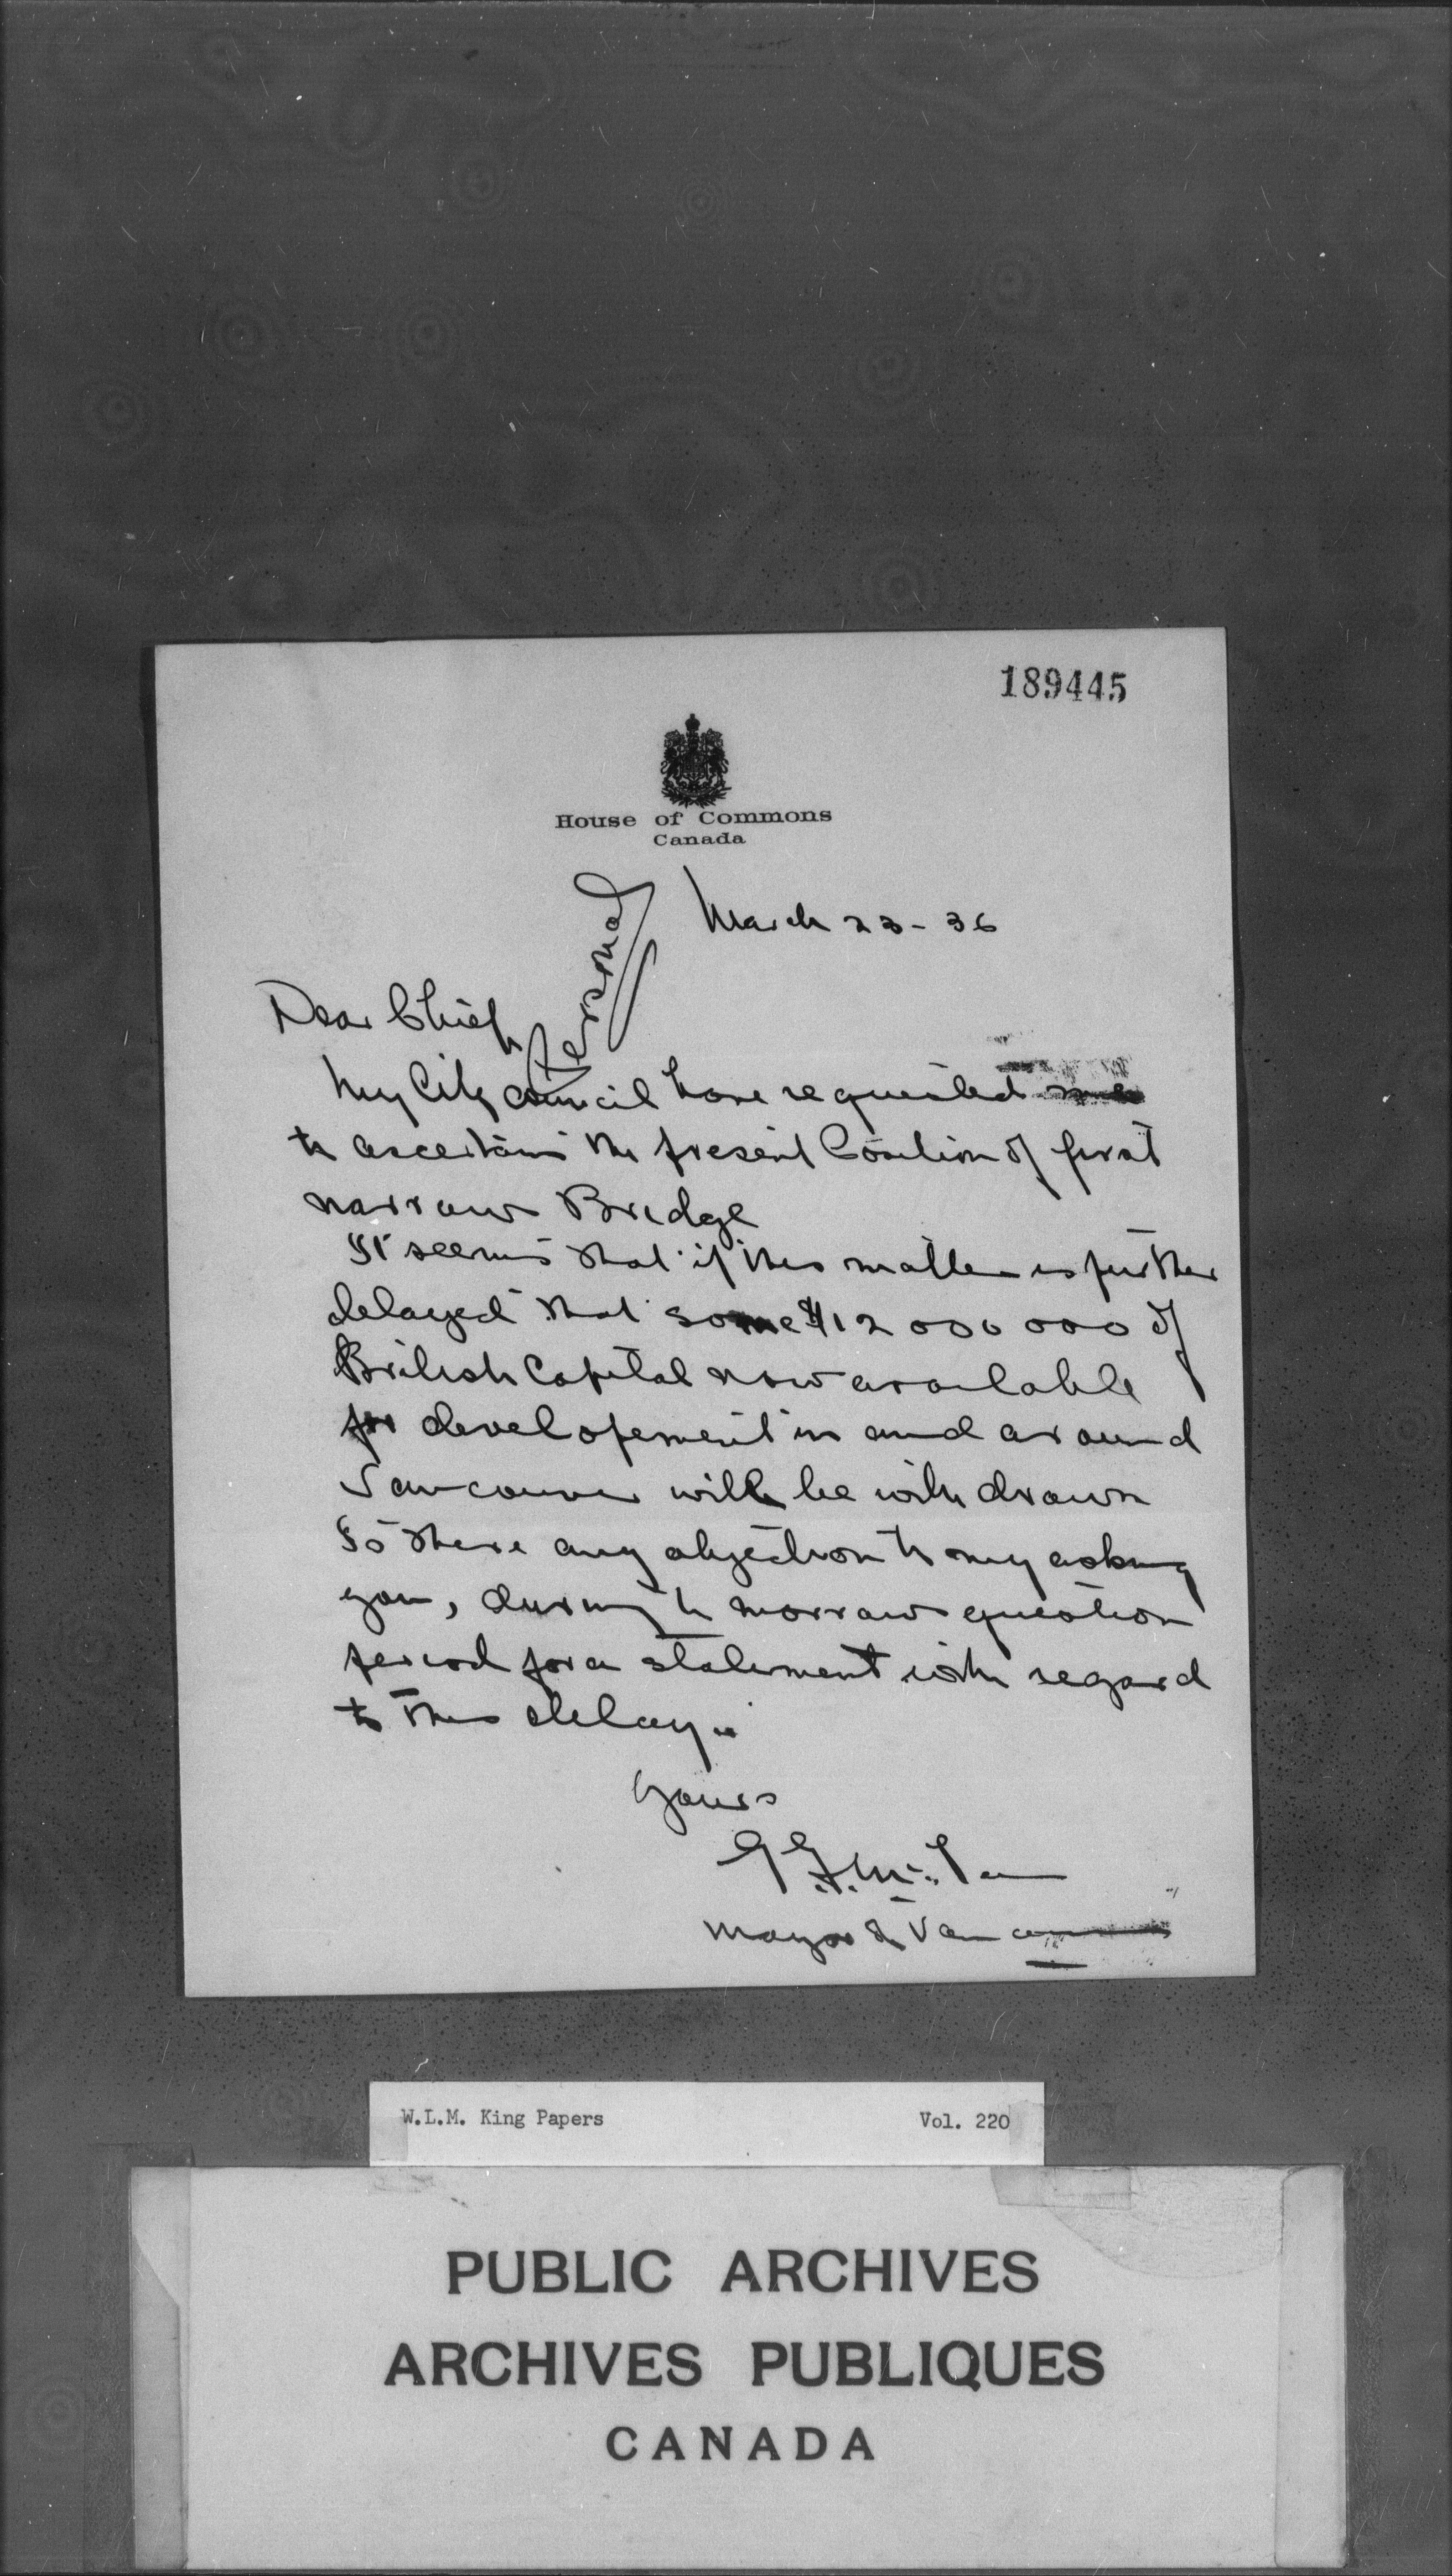 189445
House of Commons
Canada
Personal
March 23 - 36
Dear Chief,
My City council have requested me
to ascertain the present Position of first
narrow Bridge
It seems that if this matter is further
delayed that some $12 000 000 of
British Capital now available
for developement in and around
Vancouver will be with drawn
Is there any objection to my asking
you, during to morrow question
period for a statement with regard
to this delay.
Yours
G G. Mc.
Mayor of Vancouver
W.L.M. King Papers Vol. 220
PUBLIC ARCHIVES
ARCHIVES PUBLIQUES
CANADA